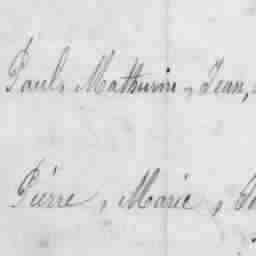 Paul, Mathurin, Jean,
Pierre, Marie,